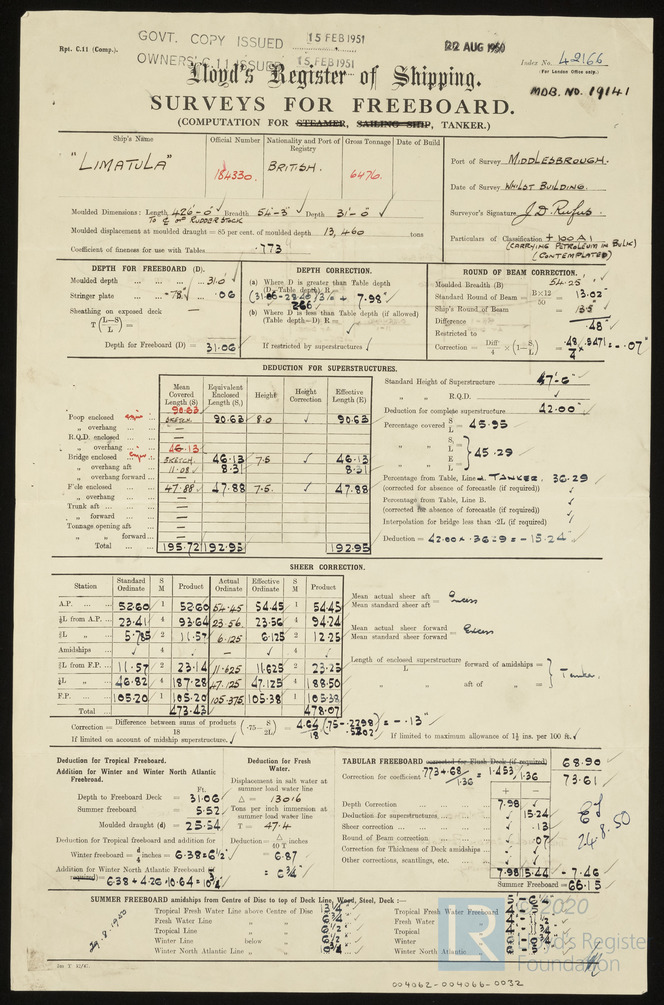 Rpt. C.11 (Comp.).
GOVT. COPY ISSUED 15 FEB 1951
OWNERS' C.11 ISSUED 15 FEB 1951
22 AUG 1950
Index No. 42166
(For London Office only.)
Lloyd's Register of Shipping.
MOB. NO. 19141
SURVEYS FOR FREEBOARD.
(COMPUTATION FOR STEAMER, SAILING SHIP, TANKER.)
Ship's Name
Official Number
Nationality and Port of Registry
Gross Tonnage
Date of Build
"LIMATULA"
184330.
BRITISH.
6476.
Port of Survey MIDDLESBROUGH.
Date of Survey WHILST BUILDING.
Surveyor's Signature J.D. Rufus.
Particulars of Classification +100A1
(CARRYING PETROLEUM IN BULK)
(CONTEMPLATED)
Moulded Dimensions: Length 426'-0" Breadth 54'-3" Depth 31'-0"
TO ⅊ OF RUDDERSTOCK
Moulded displacement at moulded draught = 85 per cent. of moulded depth 13,460 tons
Coefficient of fineness for use with Tables .773
DEPTH FOR FREEBOARD (D).
Moulded depth ... ... ... 31.0
Stringer plate ... .78" .06
Sheathing on exposed deck
T (L-S/L) =
Depth for Freeboard (D) = 31.06
DEPTH CORRECTION.
(a) Where D is greater than Table depth
(D-Table depth) R =
= + 7.98"
(b) Where D is less than Table depth (if allowed)
(Table depth-D) R =
If restricted by superstructures
ROUND OF BEAM CORRECTION.
Moulded Breadth (B) 54.25
Standard Round of Beam = B×12/50 = 13.02"
Ship's Round of Beam = 13.5
Difference .48"
Restricted to
Correction = Diff/4 × (1-S₁/L) = .48/4 × .5471 = -.07"
DEDUCTION FOR SUPERSTRUCTURES.
Mean Covered Length (S)
Equivalent Enclosed Length (S₁)
Height
Height Correction
Effective Length (E)
90.63
Poop enclosed ... SKETCH 90.63 8.0 90.63
„ overhang ... —
R.Q.D. enclosed ... —
„ overhang ... 46.13
Bridge enclosed SKETCH. 46.13 7.5 46.13
„ overhang aft 11.08 8.31 8.31
„ overhang forward ... —
F'cle enclosed ... 47.88 47.88 7.5 47.88
„ overhang ... —
Trunk aft ... —
„ forward ... —
Tonnage opening aft —
„ „ forward ... —
Total ... 195.72 192.95 192.95
Standard Height of Superstructure 7'-6"
„ „ R.Q.D.
Deduction for complete superstructure 42.00"
Percentage covered S/L = 45.95
„ „ S₁/L =
„ „ E/L = 45.29
Percentage from Table, Line TANKER. 36.29
(corrected for absence of forecastle (if required))
Percentage from Table, Line B.
(corrected for absence of forecastle (if required))
Interpolation for bridge less than .2L (if required)
Deduction = 42.00 × .3629 = -15.24"
SHEER CORRECTION.
Station Standard Ordinate S M Product Actual Ordinate Effective Ordinate S M Product
A.P. ... 52.60 1 52.60 54.45 54.45 1 54.45
⅙L from A.P. ... 23.41 4 93.64 23.56 23.56 4 94.24
⅓L „ 5.785 2 11.57 6.125 6.125 2 12.25
Amidships ... 4 — 4
⅓L from F.P. ... 11.57 2 23.14 11.625 11.625 2 23.25
⅙L „ 46.82 4 187.28 47.125 47.125 4 188.50
F.P. ... 105.20 1 105.20 105.375 105.38 1 105.38
Total ... 473.43 478.07
Mean actual sheer aft
Mean standard sheer aft = Excess
Mean actual sheer forward
Mean standard sheer forward = Excess
Length of enclosed superstructure forward of amidships =
L
„ „ aft of „ = Tanker
Correction = Difference between sums of products/18 (.75-S/2L) = 4.64/18 (.75-.2298) = -.13"
.5202
If limited on account of midship superstructure.
If limited to maximum allowance of 1½ ins. per 100 ft.
Deduction for Tropical Freeboard.
Addition for Winter and Winter North Atlantic Freeboard.
Ft.
Depth to Freeboard Deck = 31.06
Summer freeboard = 5.52
Moulded draught (d) = 25.54
Deduction for Tropical freeboard and addition for
Winter freeboard = d/4 inches = 6.38 = 6½"
Addition for Winter North Atlantic Freeboard (if required) =
6.38 + 4.26 = 10.64 = 10¾"
Deduction for Fresh Water.
Displacement in salt water at summer load water line
Δ = 13016
Tons per inch immersion at summer load water line
T = 47.4
Deduction = Δ/40 T inches
= 6.87
= 6¾"
TABULAR FREEBOARD corrected for Flush Deck (if required) 68.90
Correction for coefficient .773+.68/1.36 = 1.453/1.36 73.61
+ -
Depth Correction ... 7.98
Deduction for superstructures ... 15.24
Sheer correction ... .13
Round of Beam correction ... .07
Correction for Thickness of Deck amidships ...
Other corrections, scantlings, etc. ...
7.98 15.44 - 7.46
Summer Freeboard = 66.15
24.8.50
SUMMER FREEBOARD amidships from Centre of Disc to top of Deck Line, Wood, Steel, Deck :—
Tropical Fresh Water Line above Centre of Disc 13¼"
Fresh Water Line „ „ 6¾"
Tropical Line „ „ 6½"
Winter Line below „ 6½"
Winter North Atlantic Line „ „
Tropical Fresh Water Freeboard
Fresh Water „
Tropical „
Winter „
Winter North Atlantic „
29.8.1950
©2020
LR Lloyd's Register
Foundation
004062-004066-0032